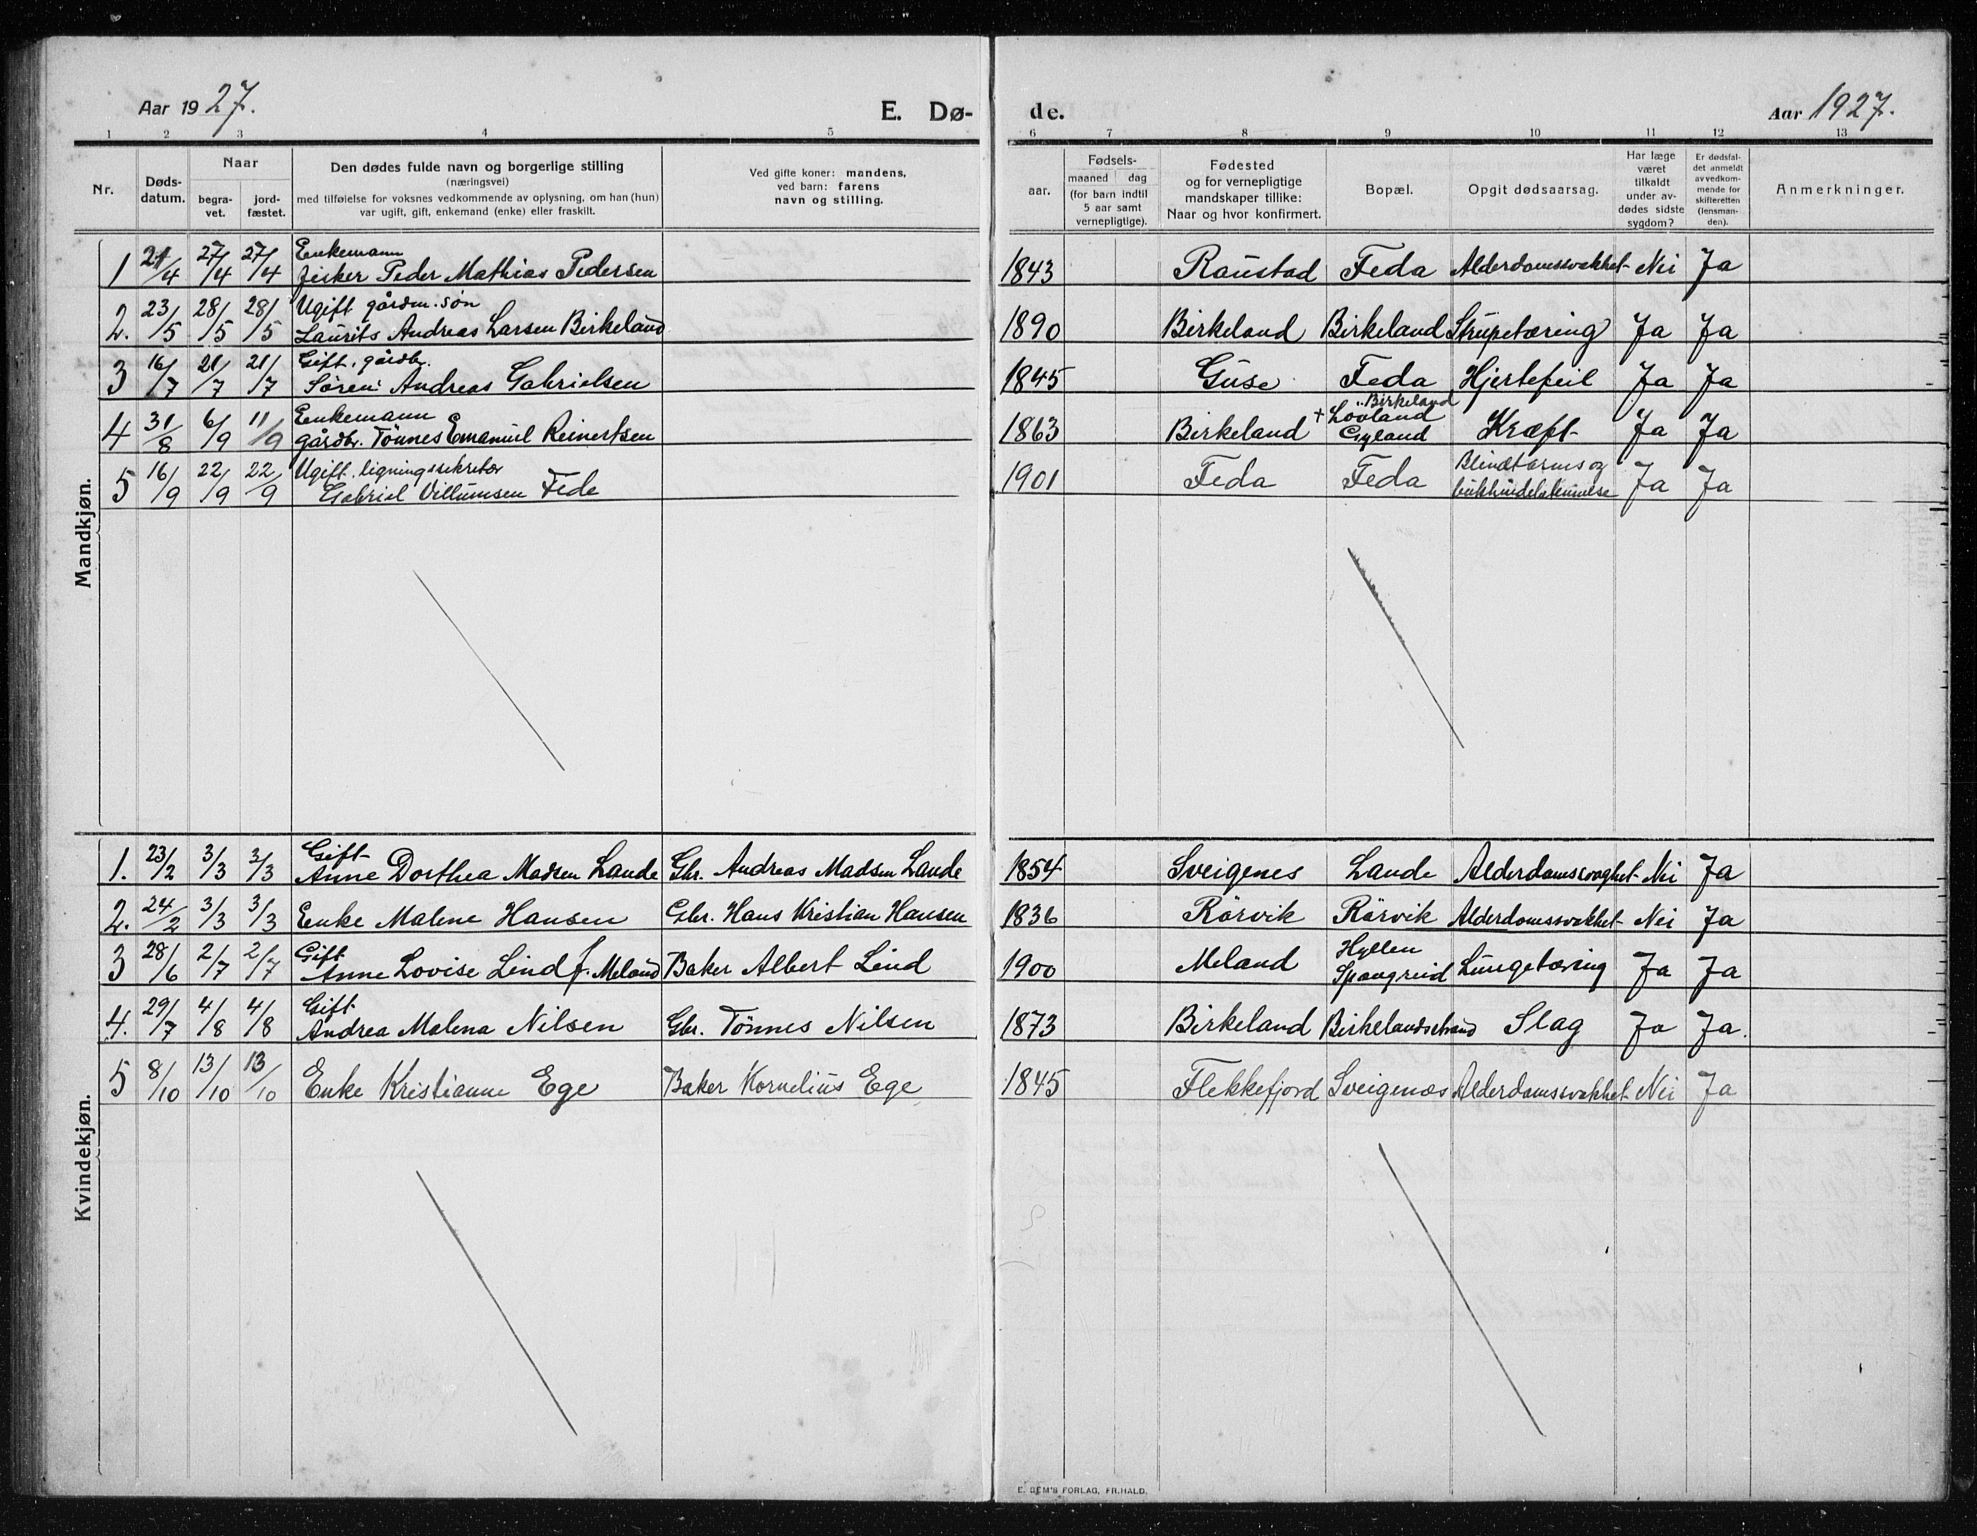 Aar 1927. E. Dø- de. Aar 1927.
1 2 3 4 5 6 7 8 9 10 11 12 13
Nr.
Døds-
datum.
Naar
begra-
vet.
jord-
fæstet.
Den dødes fulde navn og borgerlige stilling
(næringsvei)
med tilføielse for voksnes vedkommende av oplysning, om han (hun)
var ugift, gift, enkemand (enke) eller fraskilt.
Ved gifte koner: mandens,
ved barn: farens
navn og stilling.
aar.
Fødsels-
maaned dag
(for barn indtil
5 aar samt
vernepligtige).
Fødested
og for vernepligtige
mandskaper tillike:
Naar og hvor konfirmert.
Bopæl.
Opgit dødsaarsag.
Har læge
været
tilkaldt
under av-
dødes sidste
sygdom?
Er dødsfal-
det anmeldt
av vedkom-
mende for
skifteretten
(lensman-
den).
Anmerkninger.
Mandkjøn.
Enkemann
1 21/4 27/4 27/4 Fisker Peder Mathias Pedersen 1843 Raustad Feda Alderdomssvakhet Nei Ja
Ugift gårdm. søn
2. 23/5 28/5 28/5 Laurits Andreas Larsen Birkeland 1890 Birkeland Birkeland Strupetæring Ja Ja
Gift, gårdbr.
3 16/7 21/7 21/7 Søren Andreas Gabrielsen 1845 Guse Feda Hjertefeil Ja Ja
Enkemann Birkeland
4 31/8 6/9 11/9 gårdbr. Tönnes Emanuel Reinertsen 1863 Birkeland + Lovland Gyland Kræft Ja Ja
Ugift. ligningssekretær Blindtarms og
5 16/9 22/9 22/9 Gabriel Villumsen Fede 1901 Feda Feda Ja Ja
Kvindekjøn.
Gift
1. 23/2 3/3 3/3 Anne Dorthea Madsen Lande Gbr. Andreas Madsen Lande 1854 Sveigenes Lande Alderdomssvaghet Nei Ja
2. 24/2 3/3 3/3 Enke Malene Hansen Gbr. Hans Kristian Hansen 1836 Rørvik Rørvik Alderdomssvakhet Nei Ja
Gift Hyllen
3 28/6 2/7 2/7 Anne Lovise Lind f. Meland Baker Albert Lind 1900 Meland Spangreid Lungetæring Ja Ja
Gift
4. 29/7 4/8 4/8 Andrea Malena Nilsen Gbr. Tönnes Nilsen 1873 Birkeland Birkelandstrand Slag Ja Ja.
5 8/10 13/10 13/10 Enke Kristianne Ege Baker Kornelius Ege 1845 Flekkefjord Sveigenæs Alderdomssvakhet Nei Ja
E. SEM'S FORLAG, FR.HALD.